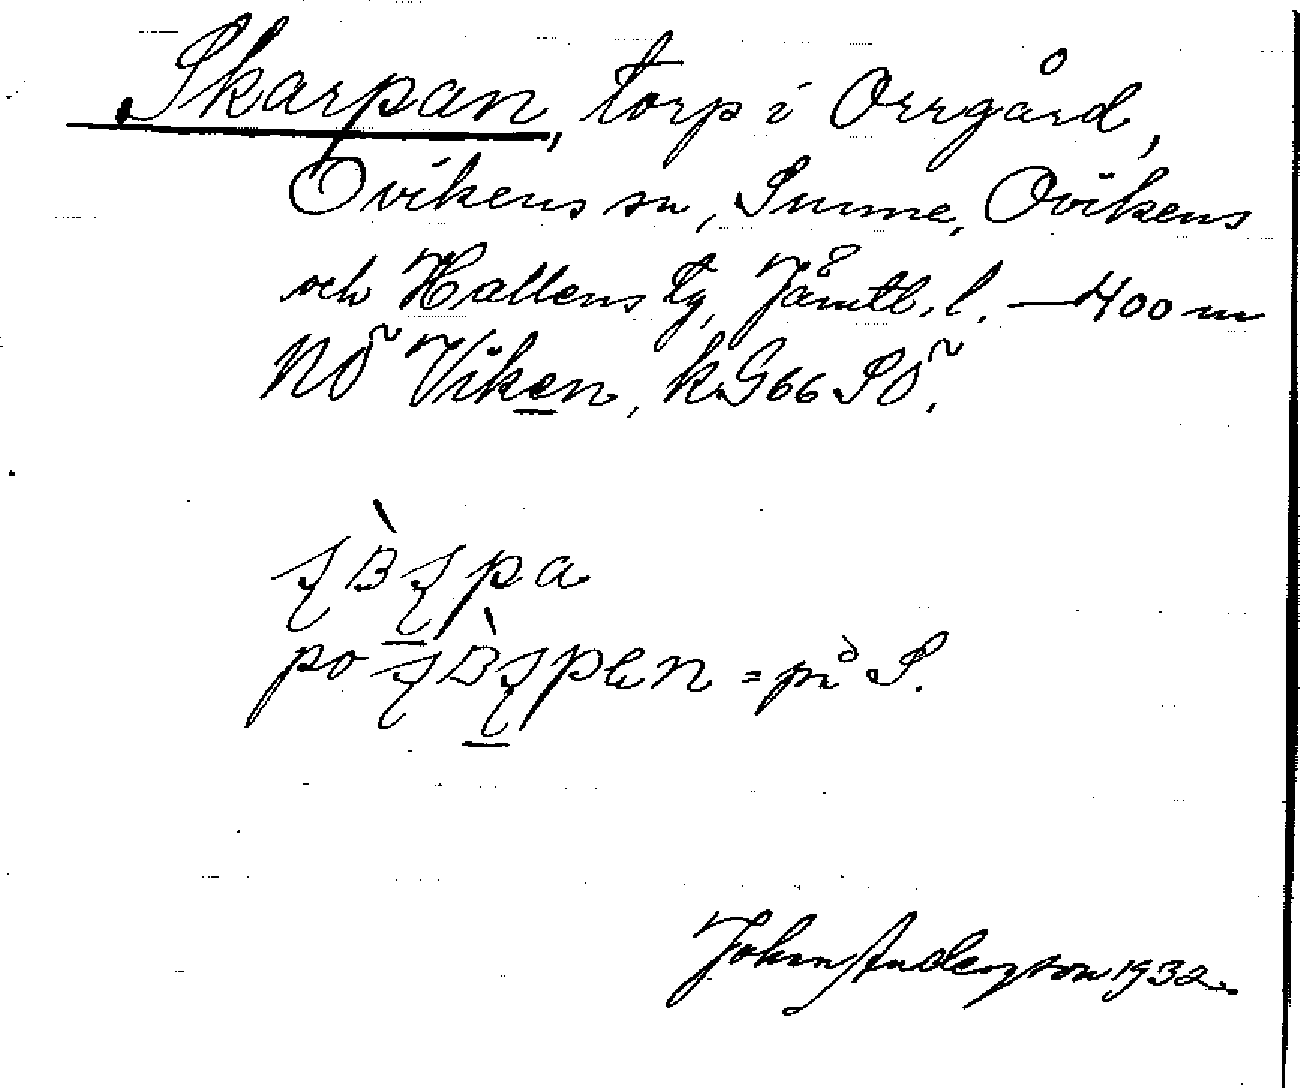 Skarpan, torp i Orrgård,
Ovikens sn, Sunne, Ovikens
och Hallens tg, Jämtl. l. — 400 m
NÖ Viken, kG66 SÖ.
po = på S.
John Anderzson 1932.